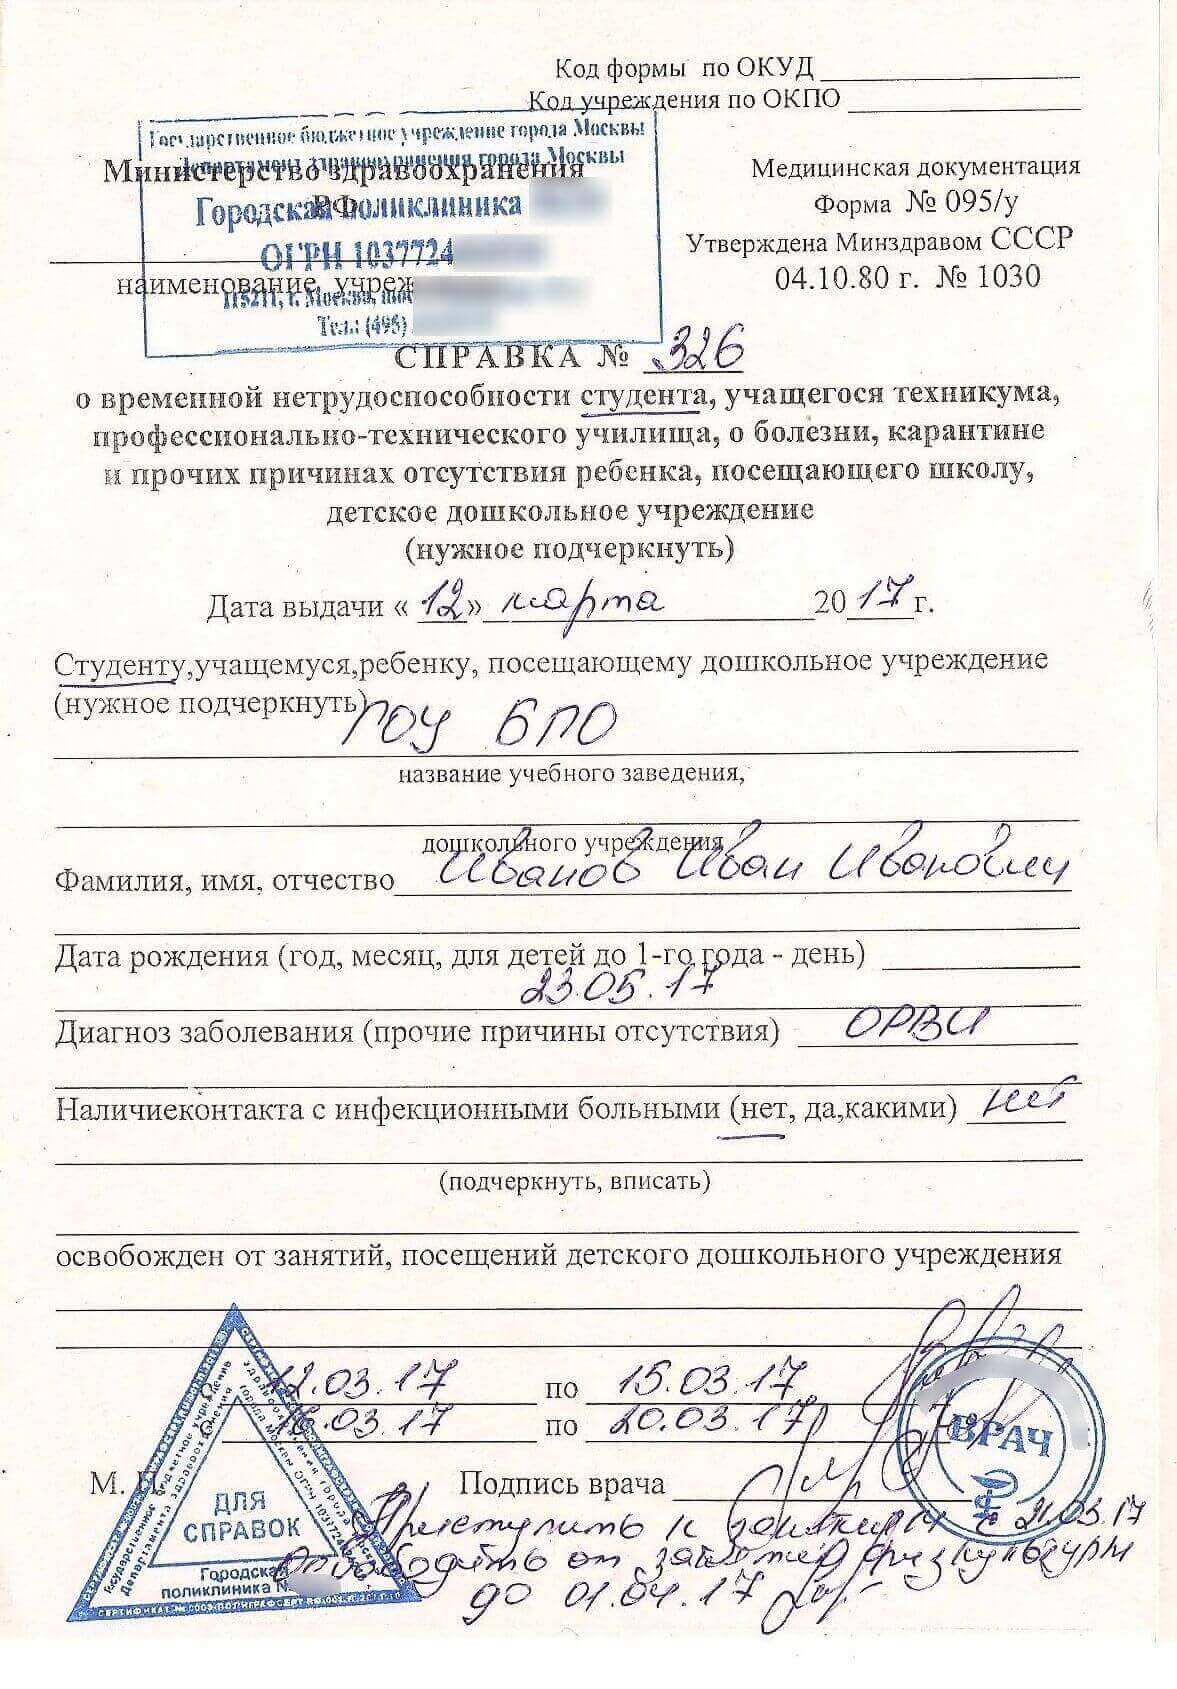 Код формы по ОКУД
Код учреждения по ОКПО
Государственное бюджетное учреждение города Москвы
Департамент здравоохранения города Москвы
Министерство здравоохранения
РФ
Городская поликлиника
ОГРН 1037724
наименование учреж
115211, г. Москва,
Тел.: (495)
Медицинская документация
Форма № 095/у
Утверждена Минздравом СССР
04.10.80 г. № 1030
СПРАВКА № 326
о временной нетрудоспособности студента, учащегося техникума,
профессионально-технического училища, о болезни, карантине
и прочих причинах отсутствия ребенка, посещающего школу,
детское дошкольное учреждение
(нужное подчеркнуть)
Дата выдачи « 12 » марта 2017 г.
Студенту,учащемуся,ребенку, посещающему дошкольное учреждение
(нужное подчеркнуть)
ГОУ БПО
название учебного заведения,
дошкольного учреждения
Фамилия, имя, отчество Иванов Иван Иванович
Дата рождения (год, месяц, для детей до 1-го года - день)
23.05.17
Диагноз заболевания (прочие причины отсутствия) ОРВИ
Наличиеконтакта с инфекционными больными (нет, да,какими) нет
(подчеркнуть, вписать)
освобожден от занятий, посещений детского дошкольного учреждения
12.03.17 по 15.03.17
16.03.17 по 20.03.17
М. П. Подпись врача
ВРАЧ
Приступить к занятиям с 21.03.17
Освободить от занятий физкультуры
до 01.04.17
ДЛЯ
СПРАВОК
Городская
поликлиника №